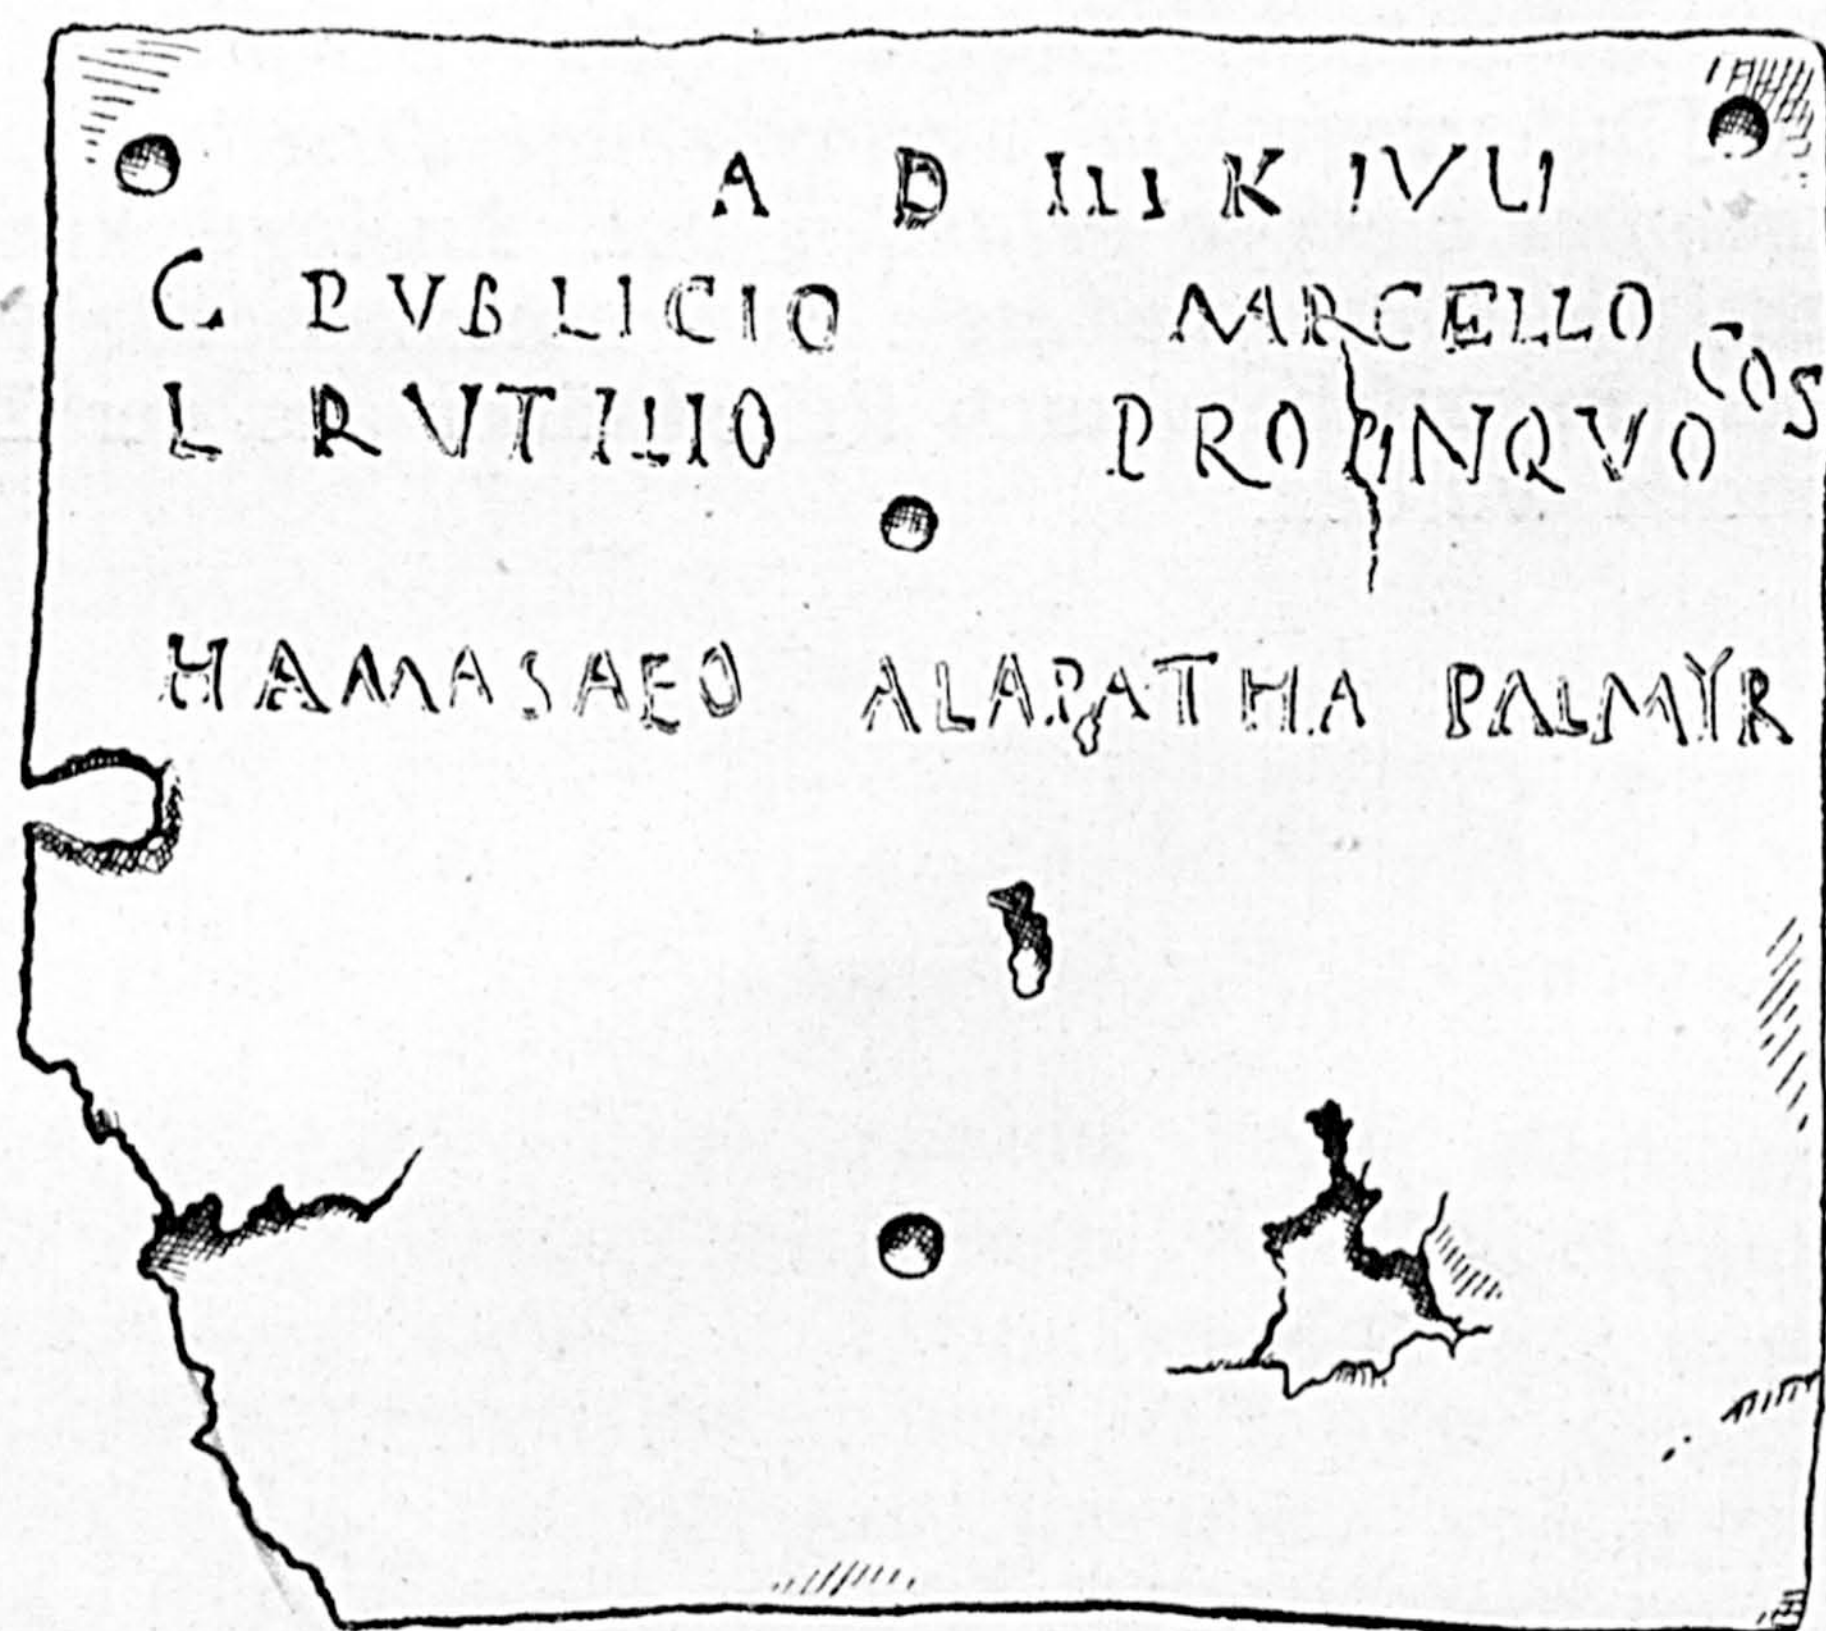 A D III K IVLI
C. PVBLICIO MARCELLO COS
L RVTILIO PROPINQVO
HAMASAEO ALAPATHA PALMYR